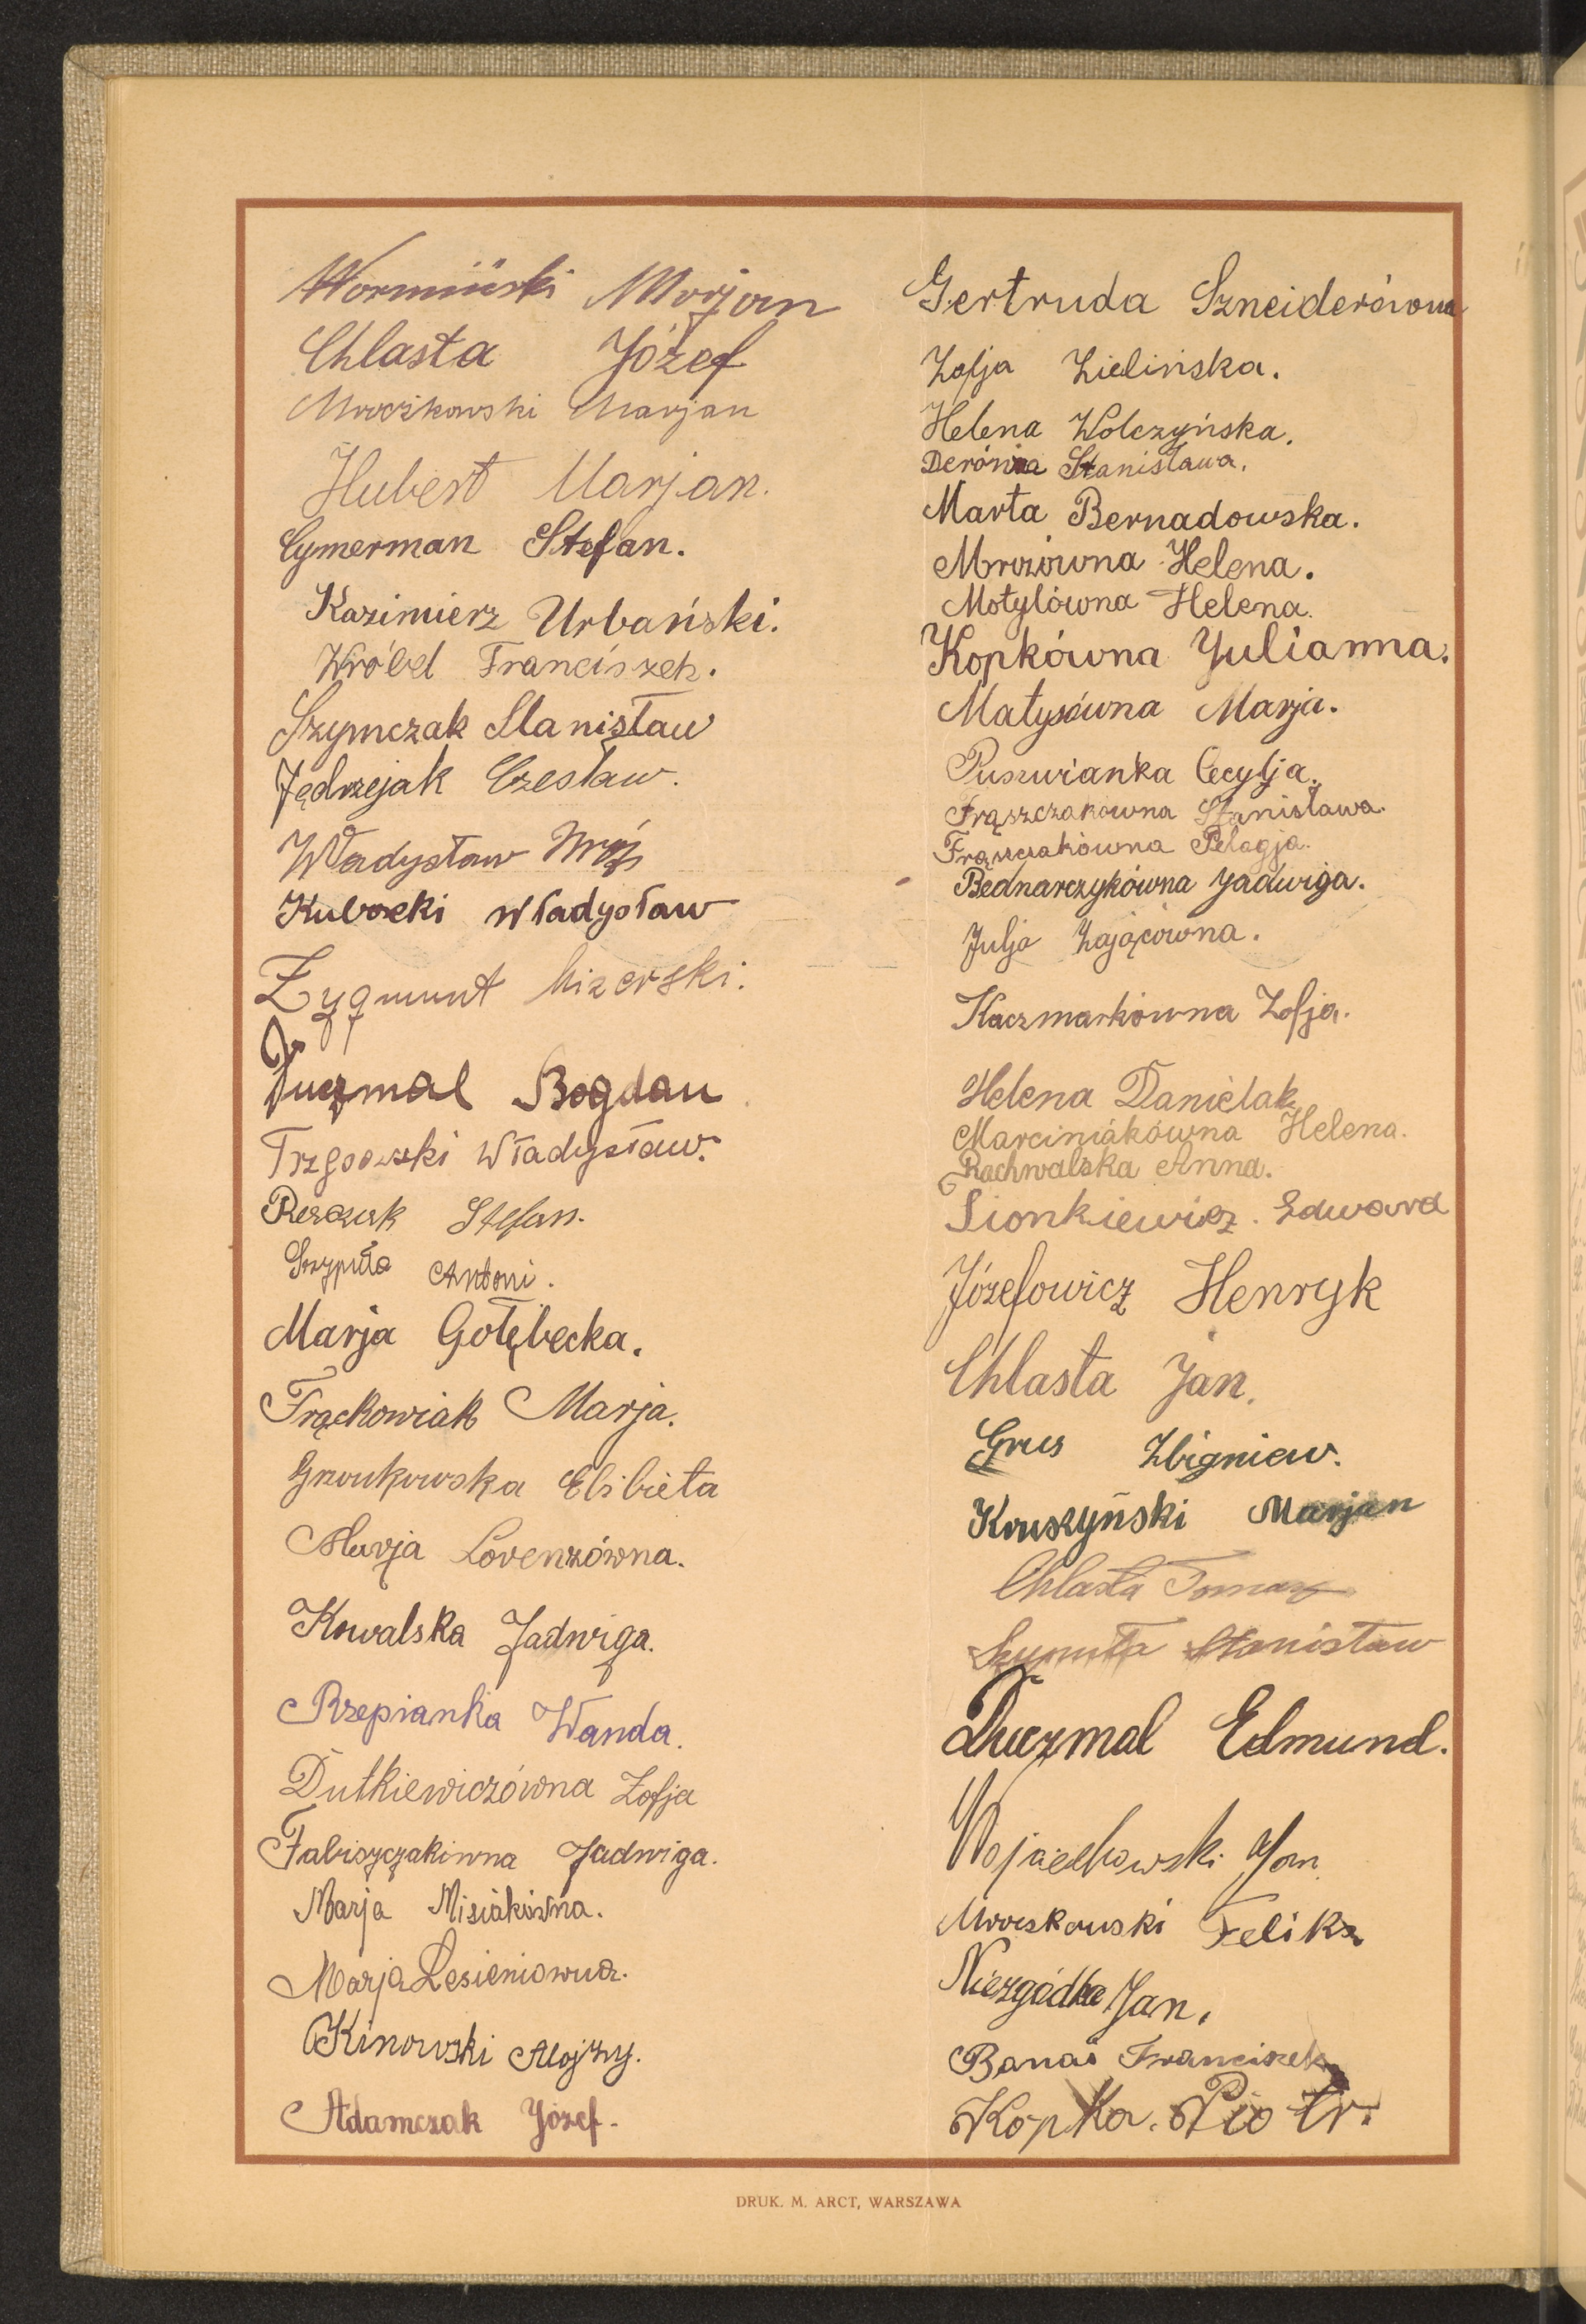 Wormiński Marjan
Chlasta Józef
Mroczkowski Marjan
Hubert Marjan.
Cymerman Stefan.
Kazimierz Urbański.
Wróbel Franciszek.
Szymczak Stanisław
Jędrzejak Czesław.
Władysław Mróz
Kubocki Władysław
Zygmunt Mizerski.
Duczmal Bogdan
Władysław.
Stefan.
Szypuła Antoni.
Marja Gołębecka.
Frąckowiak Marja.
Elżbieta
Marja Lorenzówna.
Kowalska Jadwiga.
Rzepianka Wanda.
Dutkiewiczówna Zofja
Fabiszczakówna Jadwiga.
Marja Misiakówna.
Marja Lesieniowna.
Kinowski Alojzy.
Adamczak Józef.
Gertruda Szneiderówna
Zofja Zielińska.
Helena Wolczyńska.
Derówna Stanisława.
Marta Bernadowska.
Mrozówna Helena.
Motylówna Helena.
Kopkówna Julianna.
Matysówna Marja.
Cecylja.
Frąszczakówna Stanisława.
Frąszczakówna Pelagja.
Bednarczykówna Jadwiga.
Julja Zającówna.
Kaczmarkówna Zofja.
Helena Danielak
Marciniakówna Helena.
Rachwalska Anna.
Sionkiewicz. Edward
Józefowicz Henryk
Chlasta Jan.
Grus Zbigniew.
Kruszyński Marjan
Chlasta Tomasz
Szypuła Stanisław
Duczmal Edmund.
Wojciechowski Jan
Mroczkowski Feliks
Niezgódka Jan.
Banaś Franciszek
Kopka. Piotr.
DRUK. M. ARCT, WARSZAWA